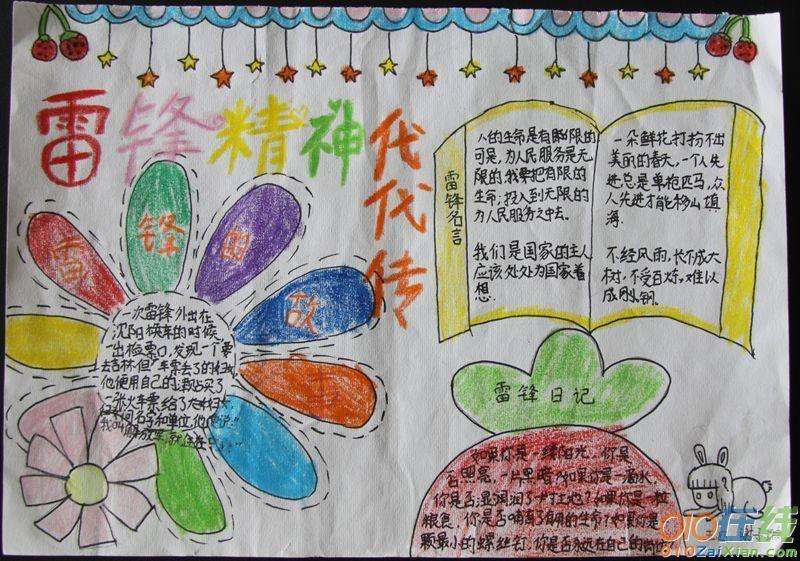 雷锋精神代代传
雷锋的故
一次雷锋外出在
沈阳换车的时候
一出检票口,发现一个
去吉林但车票丢了的
他便用自己的津贴买了
一张火车票给了大嫂
问名字和单位,他便说:"
我叫解放军,就住在
雷锋名言
人的生命是有限的
可是,为人民服务是无
限的,我要把有限的
生命,投入到无限的
为人民服务之中去。
我们是国家的主人
应该处处为国家着
想.
一朵鲜花打扮不出
美丽的春天,一个人先
进总是单枪匹马,众
人先进才能移山填
海.
不经风雨,长不成大
树,不受百炼,难以
成刚。钢
雷锋日记
如果你是一缕阳光,你是
否照亮一片黑暗?如果你是一滴水
你是否滋润了一寸土地?如果你是一粒
粮食,你是否哺育了有用的生命?如果你是一
颗最小的螺丝钉,你是否永远在自己的岗位
010在线
010ZaiXian.com